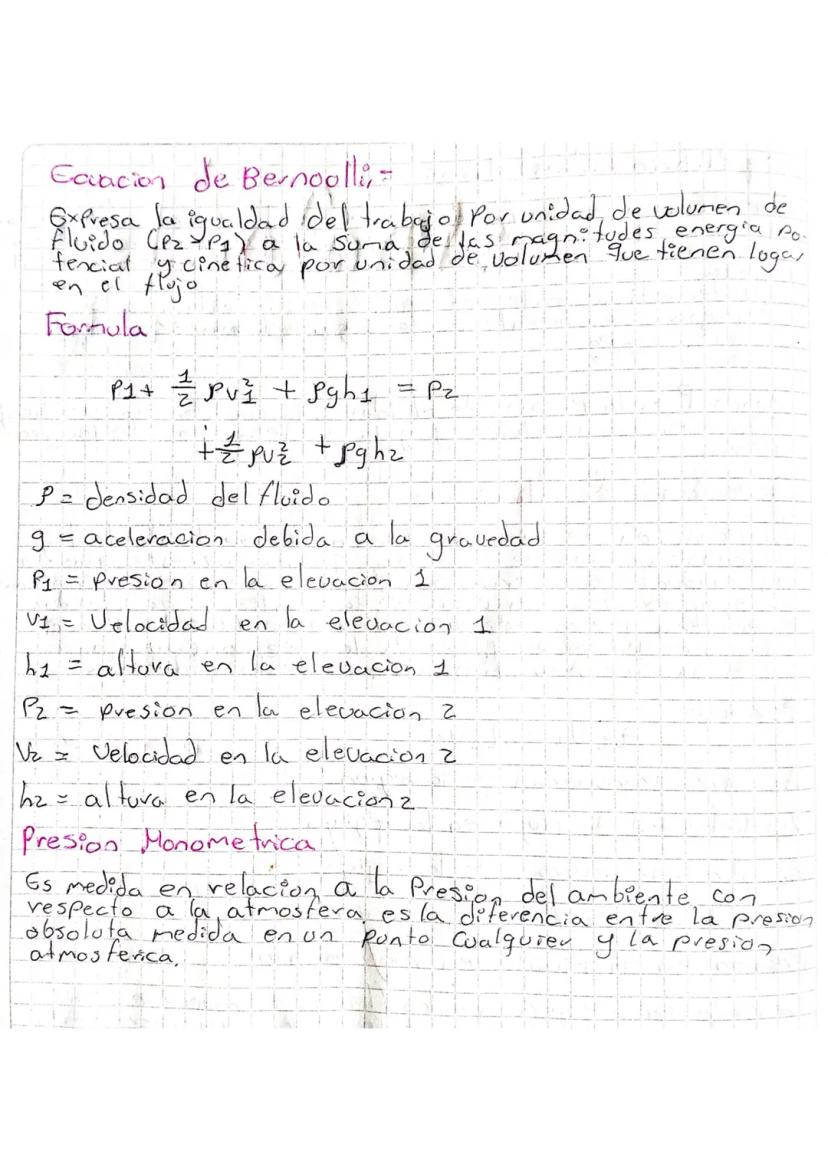 Ecuacion de Bernoolli,-
Expresa la igualdad del trabajo Por unidad de volumen de
fluido (P2 y P1) a la suma de las magnitudes energia po-
tencial y cinetica por unidad de volumen que tienen logar
en el flujo
Formula
P1 + 1/2 ρv₁² + ρgh1 = P2
+ 1/2 ρv₂² + ρgh2
ρ = densidad del fluido
g = aceleracion debida a la gravedad
P1 = presion en la elevacion 1
V1 = Velocidad en la elevacion 1
h1 = altura en la elevacion 1
P2 = presion en la elevacion 2
V2 = Velocidad en la elevacion 2
h2 = altura en la elevacion 2
Presion Monometrica
Es medida en relacion a la Presion del ambiente con
respecto a la atmosfera es la diferencia entre la presion
absoluta medida en un Punto Cualquier y la presion
atmosferica.